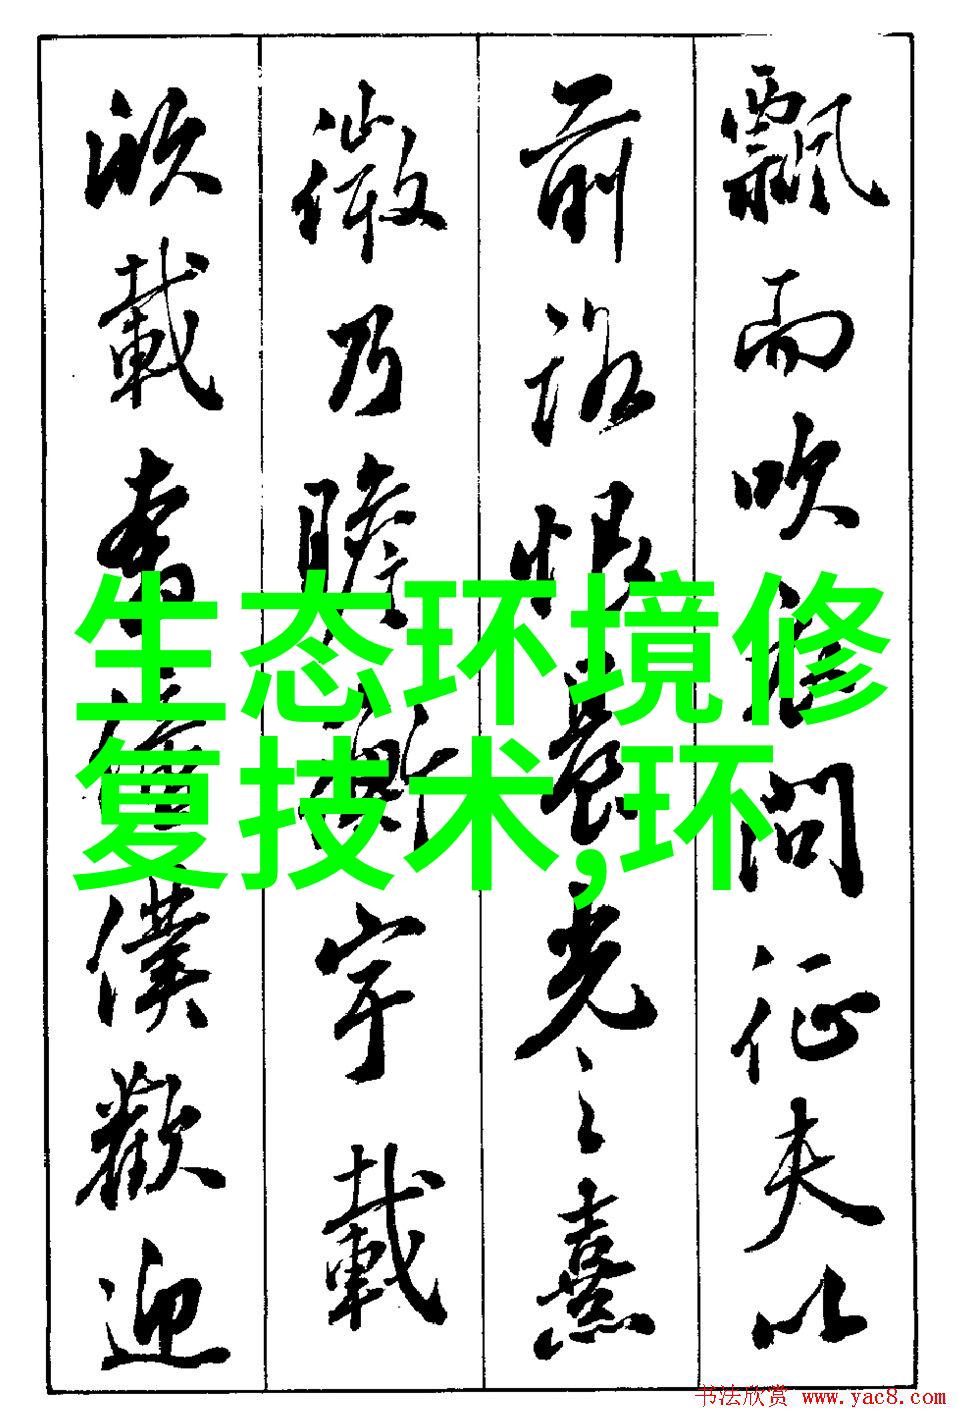 飄而吹衣問征夫以
前路恨晨光之熹
微乃瞻衡宇載
欣載奔僮僕歡迎
生态环境修
复技术,环
书法欣赏 www.yac8.com